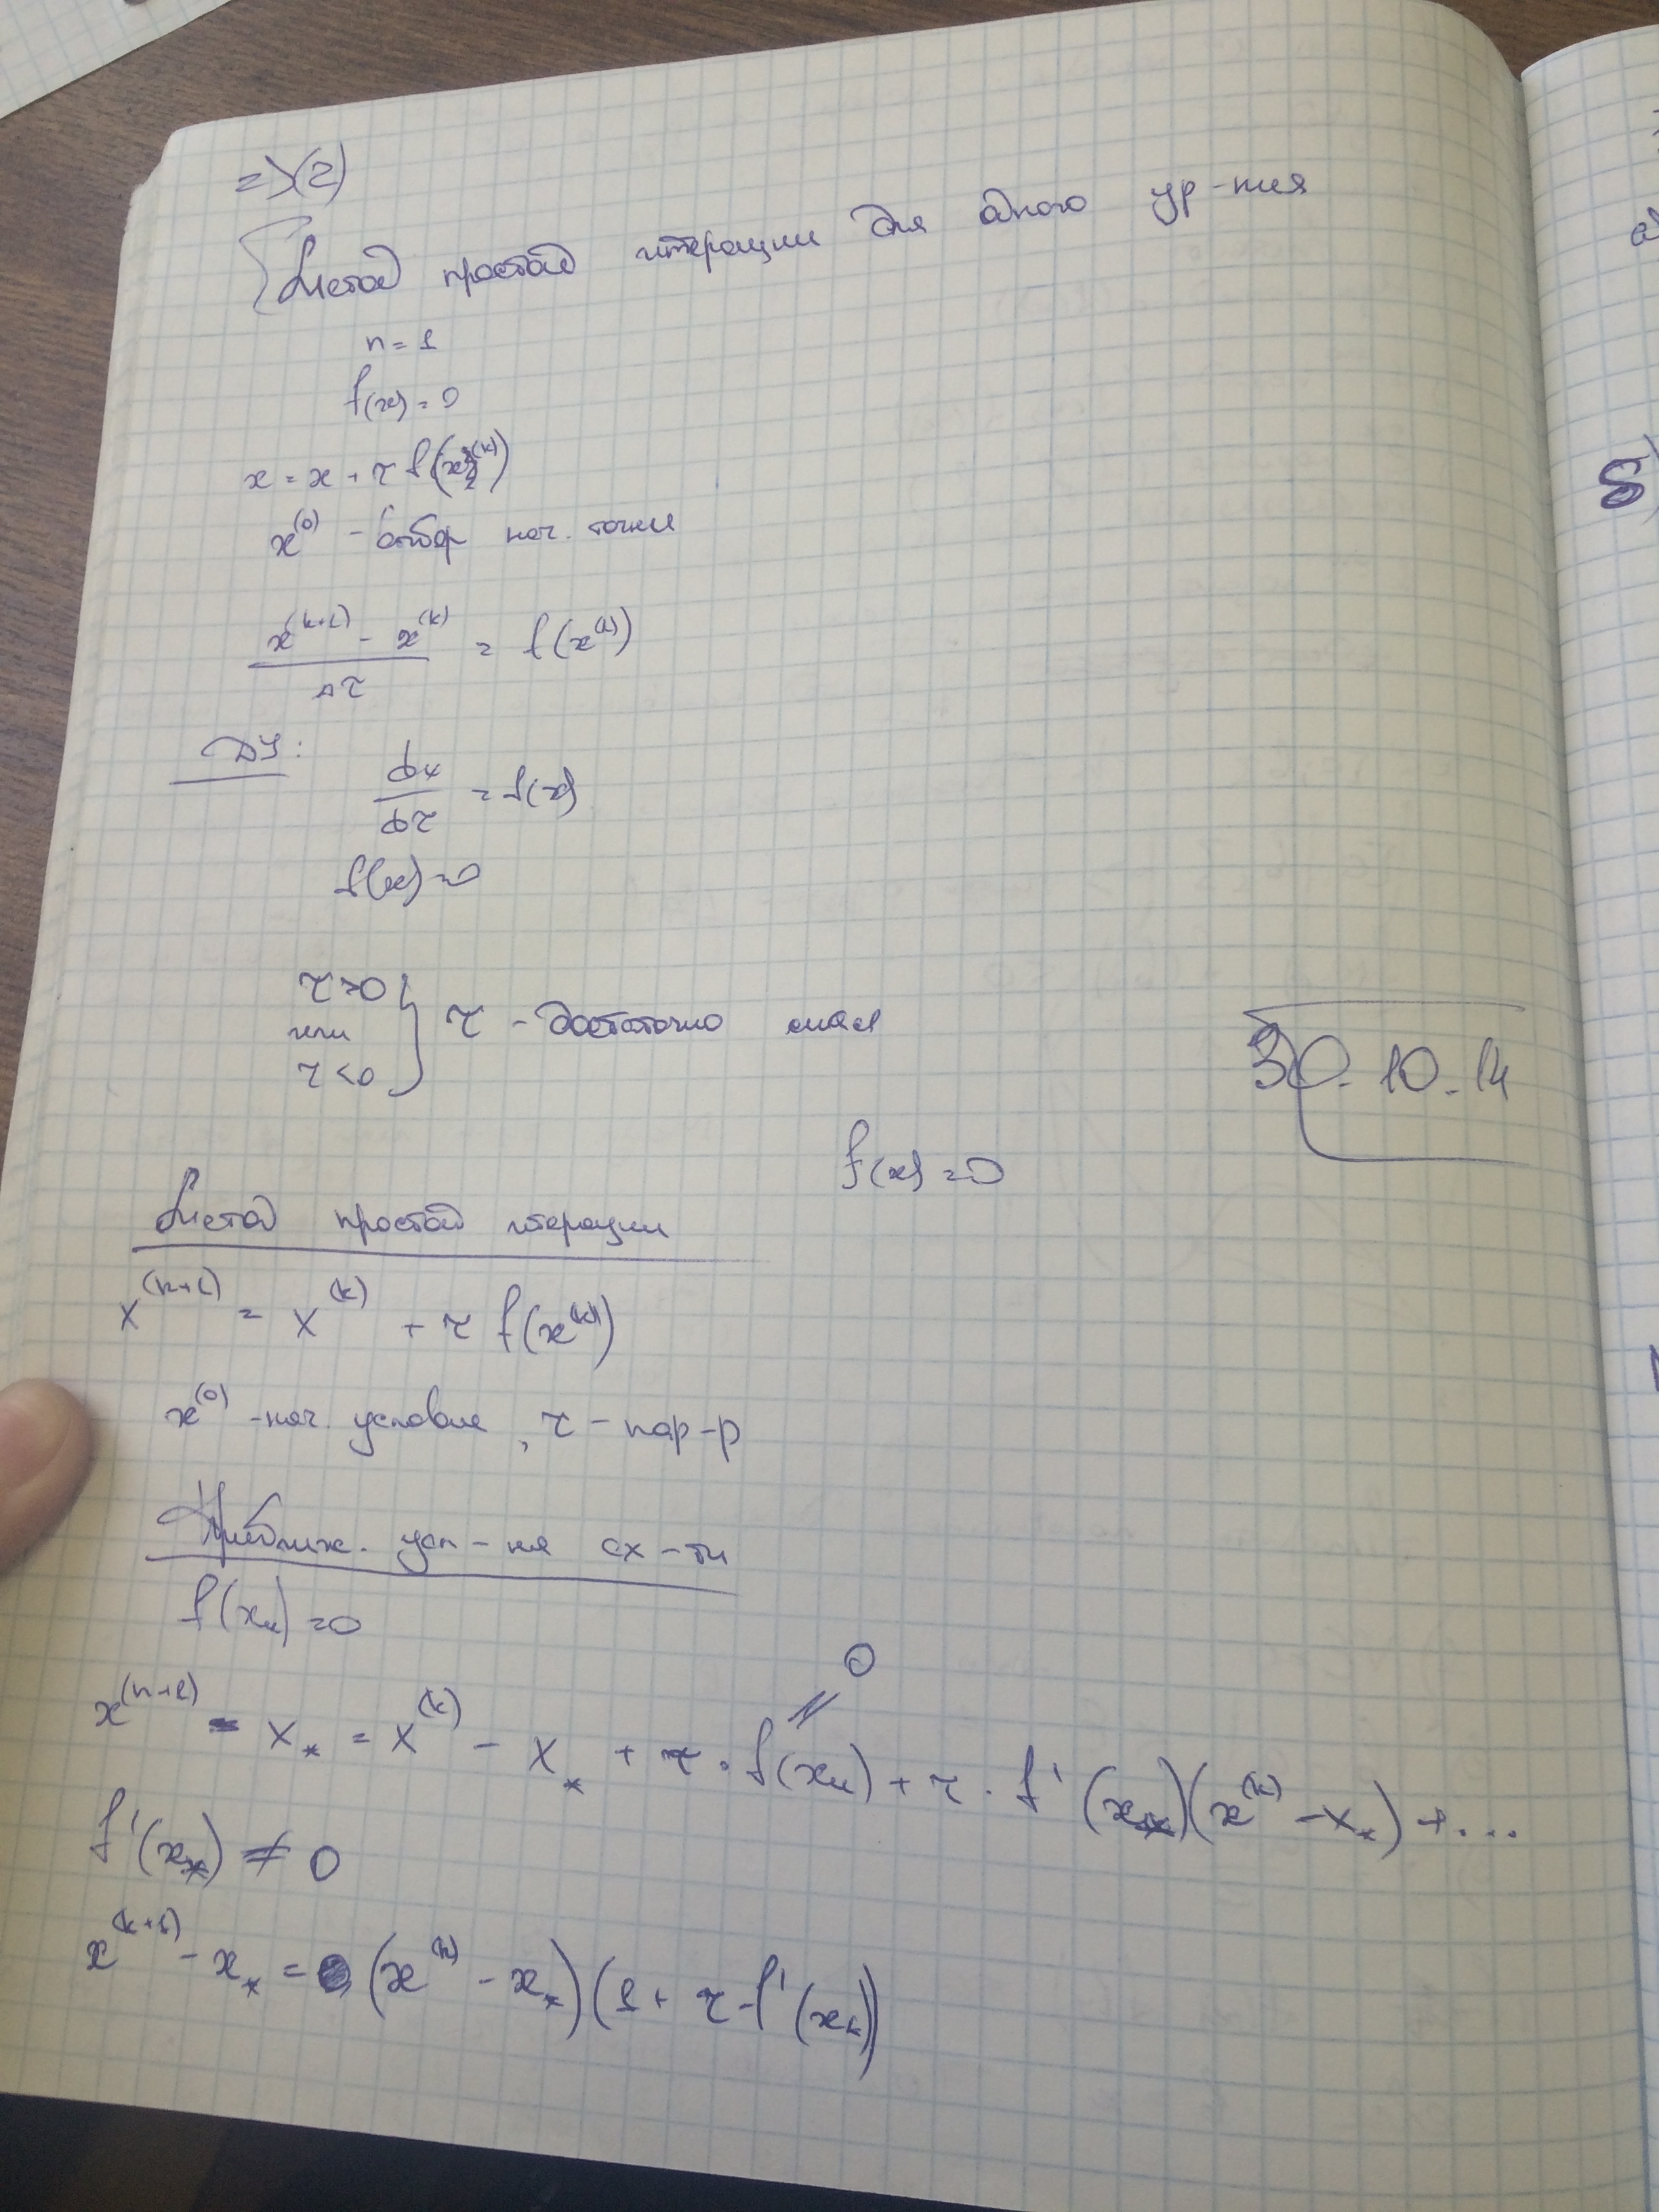 => (2)
Метод простой итерации для одного ур-ния
n = 1
f(x) = 0
x = x + τ f(x^(k))
x^(0) - выбор нач. точки
(x^(k+1) - x^(k)) / Δτ = f(x^(k))
ДУ:
dx/dτ = f(x)
f(x) = 0
τ > 0
или
τ < 0
} τ - достаточно мал
30.10.14
f(x) = 0
Метод простой итерации
x^(k+1) = x^(k) + τ f(x^(k))
x^(0) - нач. условие, τ - пар-р
Приближ. усл-ия сх-ти
f(x_*) = 0
0
x^(k+1) - x_* = x^(k) - x_* + τ · f(x_*) + τ · f'(x_*)(x^(k) - x_*) + ...
f'(x_*) ≠ 0
x^(k+1) - x_* = (x^(k) - x_*)(1 + τ f'(x_*))
б)